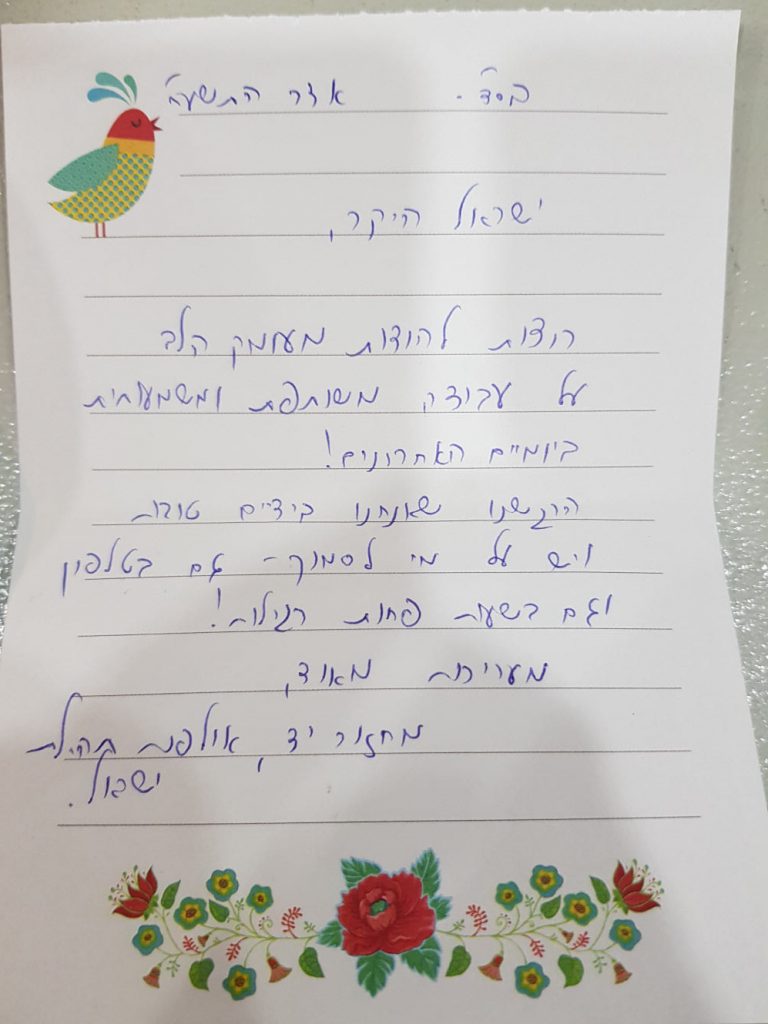 בסד״. אדר התשעח״
ישראל היקר,
רוצות להודות מעומק הלב
על עבודה משותפת ומשמעותית
ביומיים האחרונים!
הרגשנו שאנחנו בידיים טובות
ויש על מי לסמוך - גם בטלפון
וגם בשעות פחות רגילות!
מעריכות מאוד,
מחזור יד, אולפנת תהילת
ישראל.